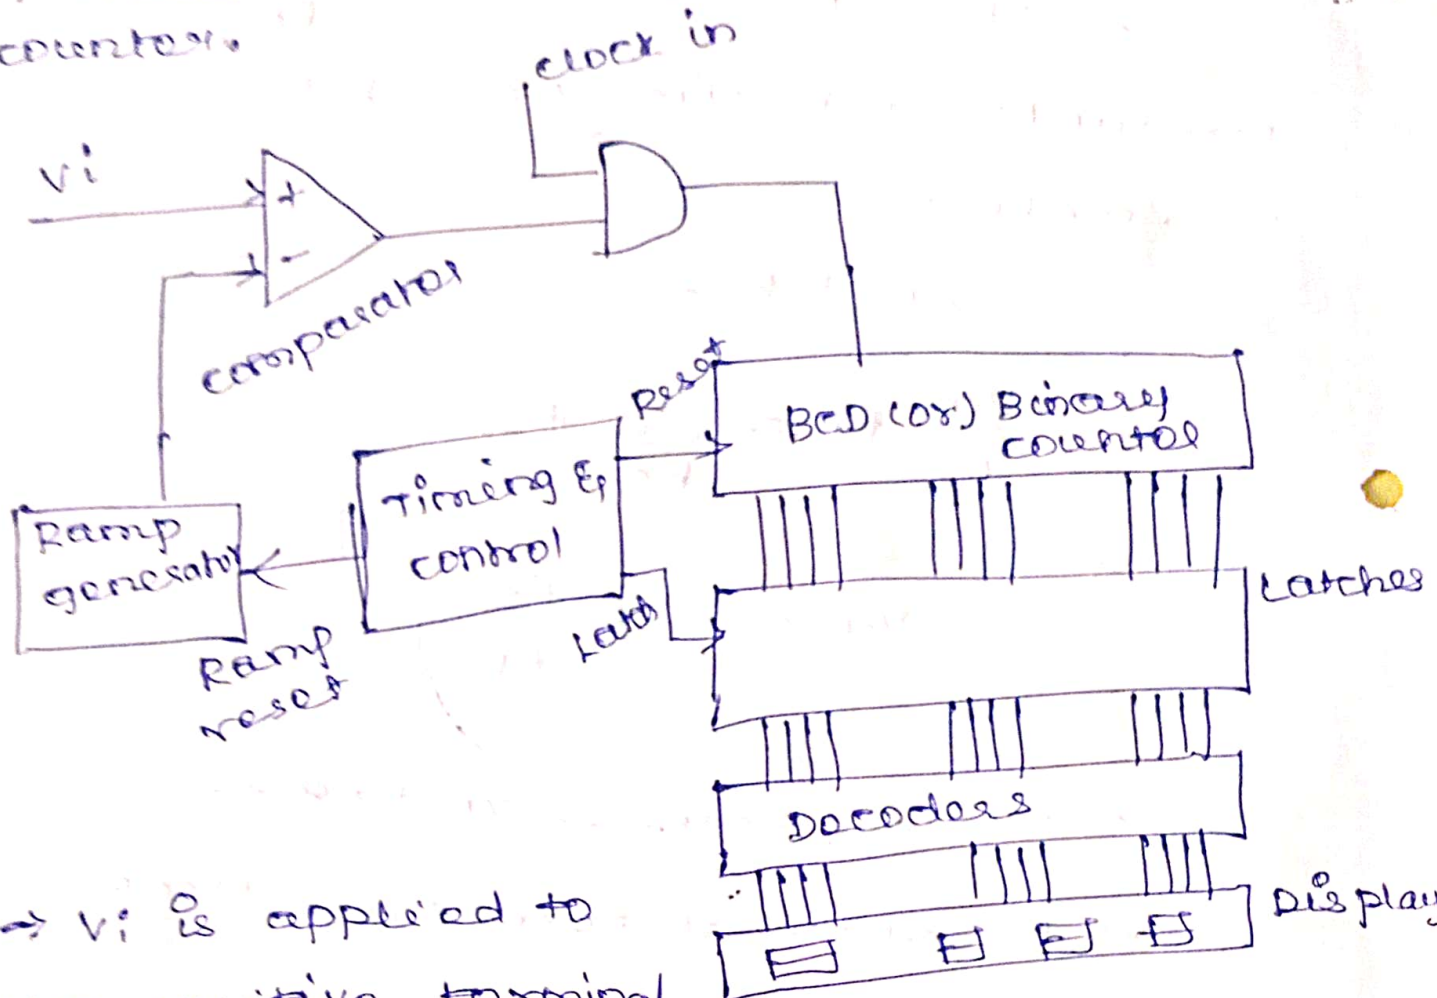 counter.
clock in
Vi
+
-
comparator
Reset
BCD (or) Binary
counter
Timing &
control
Ramp
generator
Latches
Latch
Ramp
reset
Decoders
→ Vi is applied to
Display
terminal